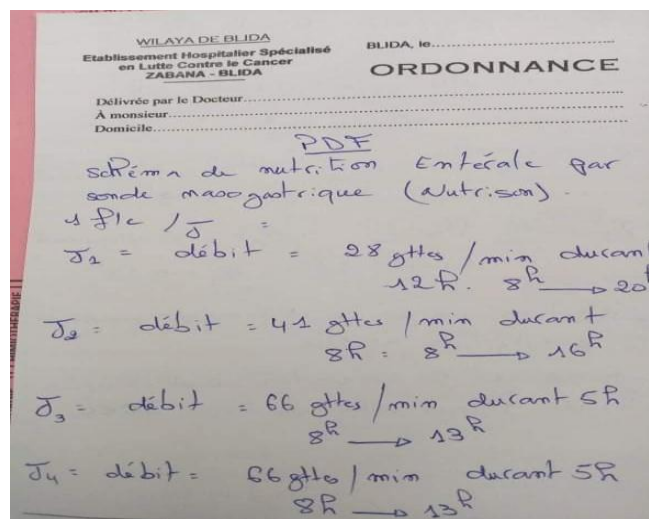 WILAYA DE BLIDA
Etablissement Hospitalier Spécialisé
en Lutte Contre le Cancer
ZABANA - BLIDA
BLIDA, le
ORDONNANCE
Délivrée par le Docteur
À monsieur
Domicile
PDF
Schéma de nutrition Entérale par
sonde nasogastrique (Nutrison).
1 flc / J =
J1 = débit = 28 gttes / min durant
12h. 8h → 20h
J2 = débit = 41 gttes / min durant
8h : 8h → 16h
J3 = débit = 66 gttes / min durant 5h
8h → 13h
J4 = débit = 66 gttes / min durant 5h
8h → 13h